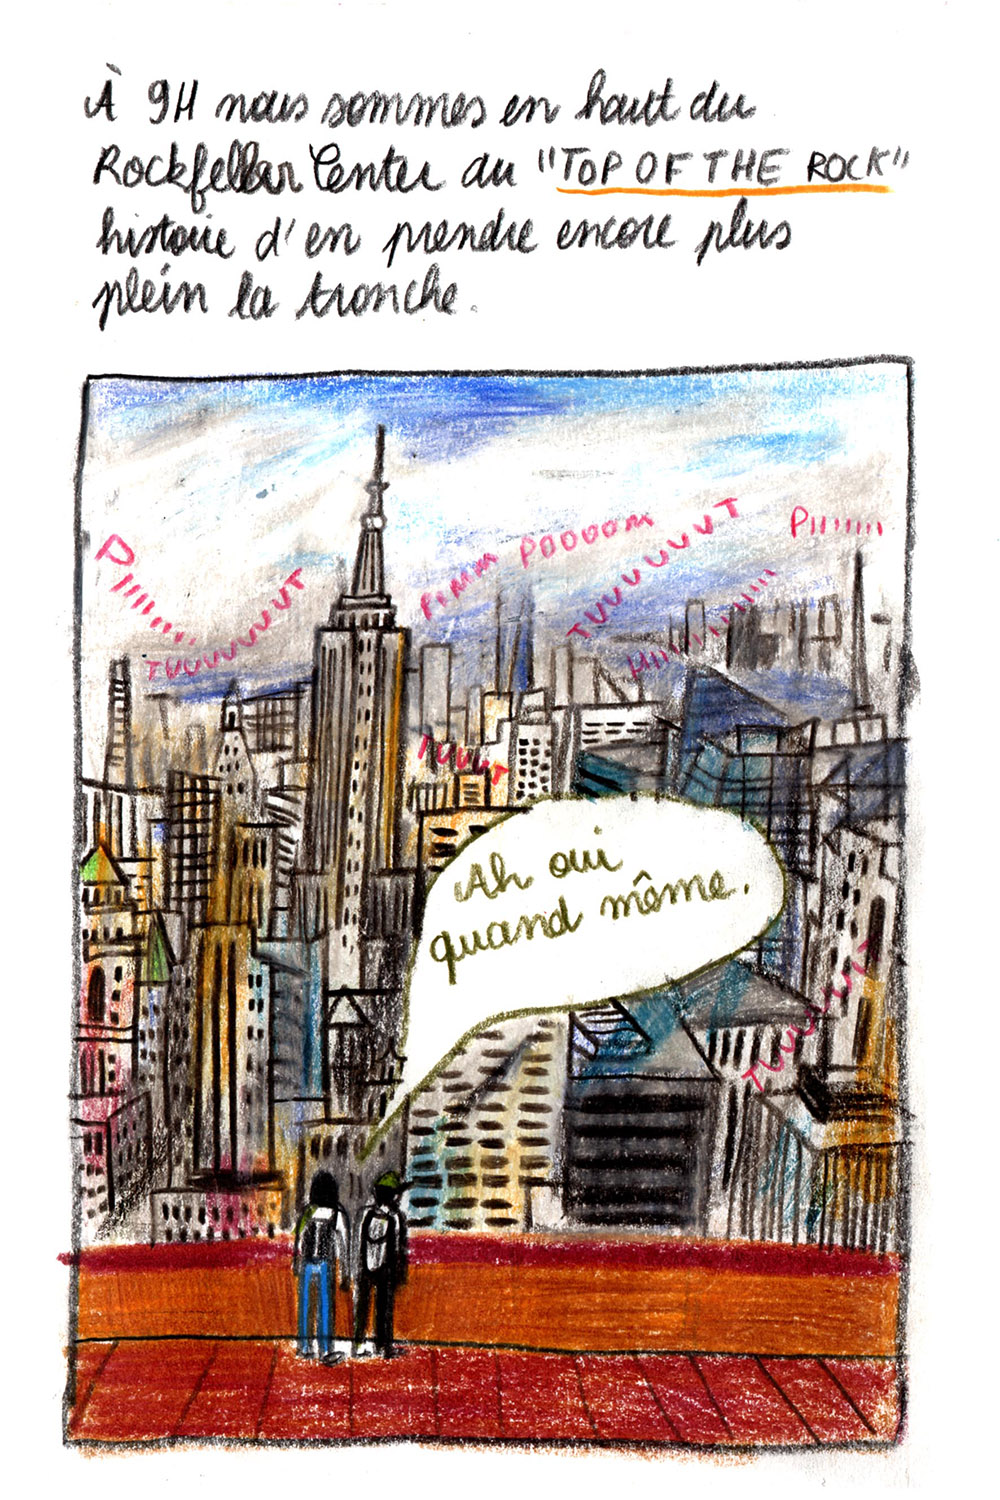 À 9H nous sommes en haut du
Rockfeller Center au "TOP OF THE ROCK"
histoire d'en prendre encore plus
plein la tronche.
PIIIIIII
TUUUUUUUT
PIMM POOOOM
TUUUUUUUT
PIIIIIII
TUUUT
Ah oui
quand même.